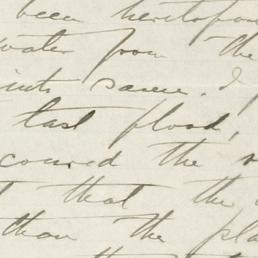 been heretofore
water from the
into same. I
last flood,
scoured the
that the
than the